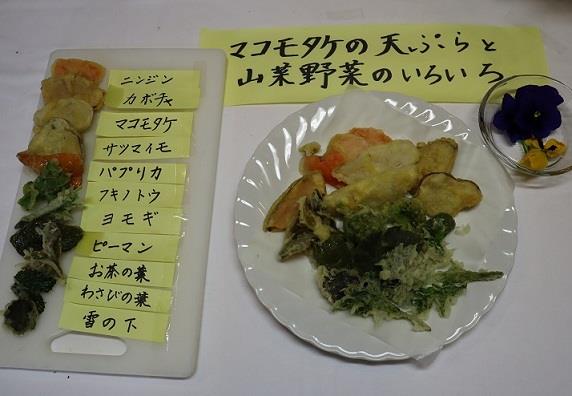 マコモタケの天ぷらと
山菜野菜のいろいろ
ニンジン
カボチャ
マコモタケ
サツマイモ
パプリカ
フキノトウ
ヨモギ
ピーマン
お茶の葉
わさびの葉
雪の下